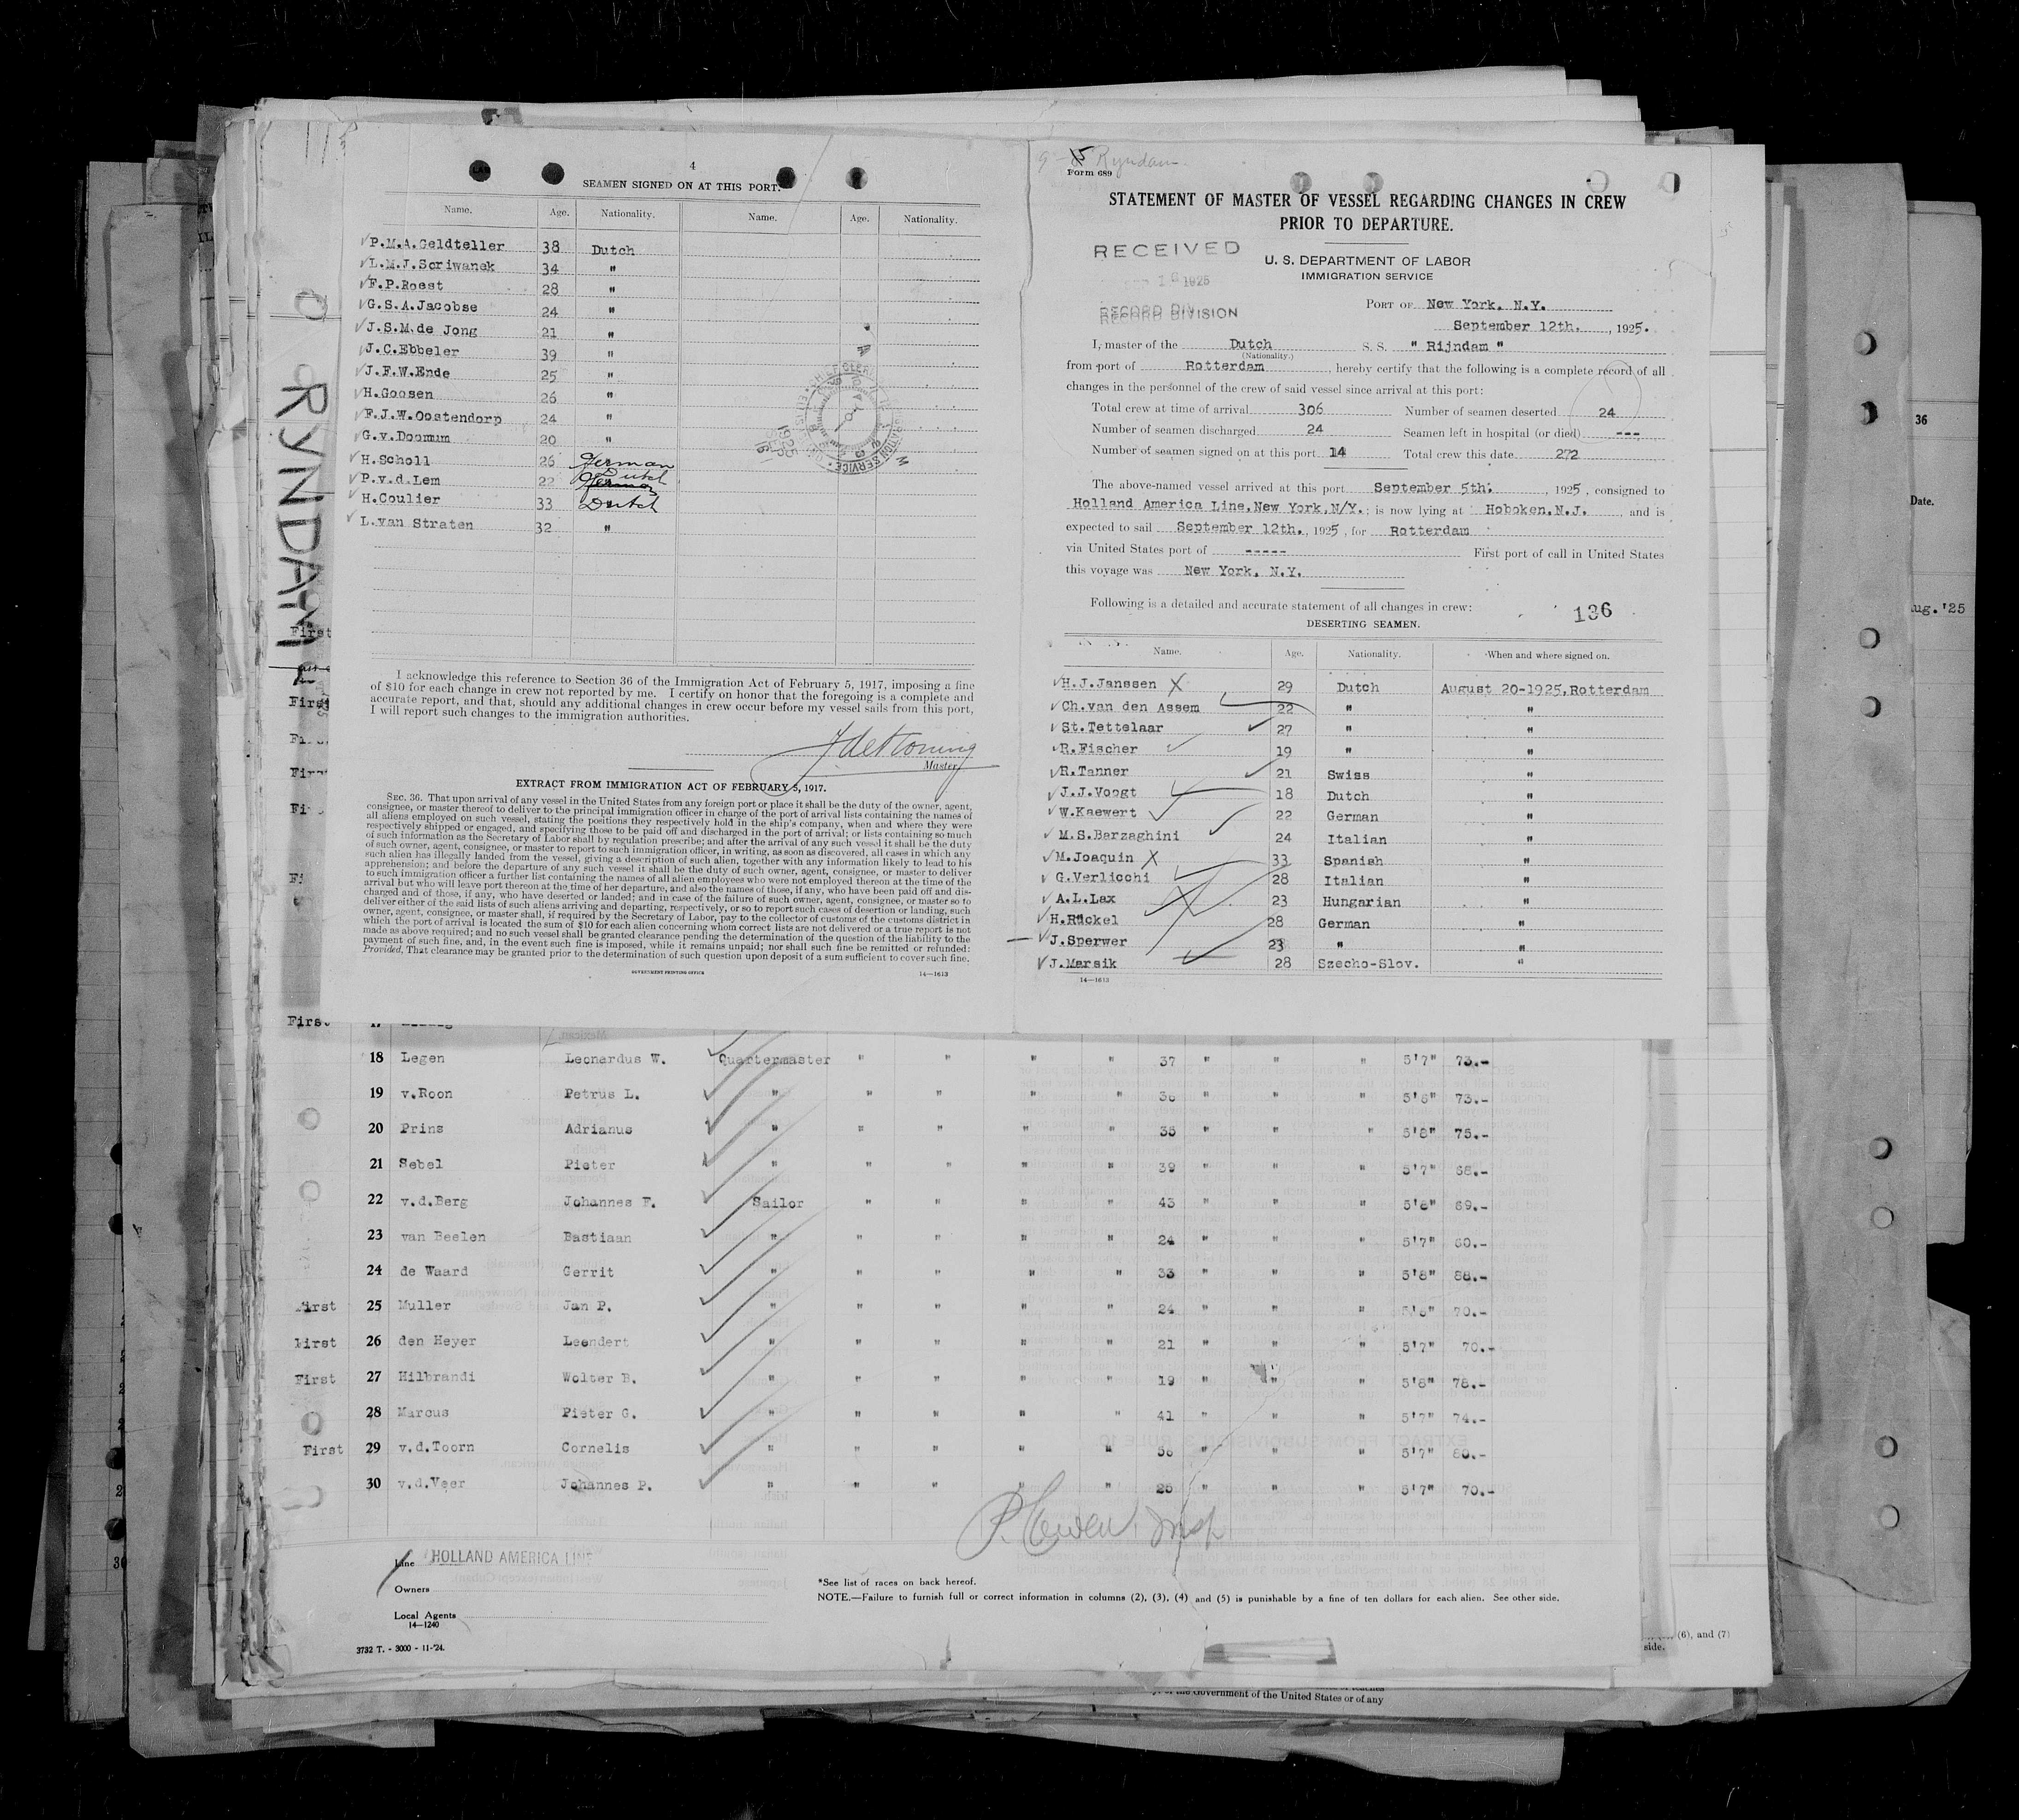 4
SEAMEN SIGNED ON AT THIS PORT.
Name. Age. Nationality. Name. Age. Nationality.
P.M.A.Geldteller 38 Dutch
L.M.J.Scriwanek 34 "
F.P.Roest 28 "
G.S.A.Jacobse 24 "
J.S.M.de Jong 21 "
J.C.Ebbeler 39 "
J.F.W.Ende 25 "
H.Goosen 26 "
F.J.W.Oostendorp 24 "
G.v.Doomum 20 "
H.Scholl 26 German
P.v.d.Lem 22 Dutch
H.Coulier 33 Dutch
L.van Straten 32 "
I acknowledge this reference to Section 36 of the Immigration Act of February 5, 1917, imposing a fine
of $10 for each change in crew not reported by me. I certify on honor that the foregoing is a complete and
accurate report, and that, should any additional changes in crew occur before my vessel sails from this port,
I will report such changes to the immigration authorities.
Master
EXTRACT FROM IMMIGRATION ACT OF FEBRUARY 5, 1917.
SEC. 36. That upon arrival of any vessel in the United States from any foreign port or place it shall be the duty of the owner, agent,
consignee, or master thereof to deliver to the principal immigration officer in charge of the port of arrival lists containing the names of
all aliens employed on such vessel, stating the positions they respectively hold in the ship's company, when and where they were
respectively shipped or engaged, and specifying those to be paid off and discharged in the port of arrival; or lists containing so much
of such information as the Secretary of Labor shall by regulation prescribe; and after the arrival of any such vessel it shall be the duty
of such owner, agent, consignee, or master to report to such immigration officer, in writing, as soon as discovered, all cases in which any
such alien has illegally landed from the vessel, giving a description of such alien, together with any information likely to lead to his
apprehension; and before the departure of any such vessel it shall be the duty of such owner, agent, consignee, or master to deliver
to such immigration officer a further list containing the names of all alien employees who were not employed thereon at the time of the
arrival but who will leave port thereon at the time of her departure, and also the names of those, if any, who have been paid off and dis-
charged and of those, if any, who have deserted or landed; and in case of the failure of such owner, agent, consignee, or master so to
deliver either of the said lists of such aliens arriving and departing, respectively, or so to report such cases of desertion or landing, such
owner, agent, consignee, or master shall, if required by the Secretary of Labor, pay to the collector of customs of the customs district in
which the port of arrival is located the sum of $10 for each alien concerning whom correct lists are not delivered or a true report is not
made as above required; and no such vessel shall be granted clearance pending the determination of the question of the liability to the
payment of such fine, and, in the event such fine is imposed, while it remains unpaid; nor shall such fine be remitted or refunded:
Provided, That clearance may be granted prior to the determination of such question upon deposit of a sum sufficient to cover such fine.
GOVERNMENT PRINTING OFFICE 14—1613
RYNDAM
Ryndam
Form 689
STATEMENT OF MASTER OF VESSEL REGARDING CHANGES IN CREW
PRIOR TO DEPARTURE.
RECEIVED
1925
RECORD DIVISION
U. S. DEPARTMENT OF LABOR
IMMIGRATION SERVICE
PORT OF New York, N.Y.
September 12th. , 1925.
I, master of the Dutch S. S. " Rijndam "
(Nationality.)
from port of Rotterdam , hereby certify that the following is a complete record of all
changes in the personnel of the crew of said vessel since arrival at this port:
Total crew at time of arrival 306 Number of seamen deserted 24
Number of seamen discharged 24 Seamen left in hospital (or died) ---
Number of seamen signed on at this port 14 Total crew this date 272
The above-named vessel arrived at this port September 5th. , 1925 , consigned to
Holland America Line,New York,N/Y. ; is now lying at Hoboken,N.J. , and is
expected to sail September 12th. , 1925 , for Rotterdam
via United States port of ----- First port of call in United States
this voyage was New York, N.Y.
Following is a detailed and accurate statement of all changes in crew:
136
DESERTING SEAMEN.
Name. Age. Nationality. When and where signed on.
H.J.Janssen 29 Dutch August 20-1925,Rotterdam
Ch.van den Assem 22 " "
St.Tettelaar 27 " "
R.Fischer 19 " "
R.Tanner 21 Swiss "
J.J.Voogt 18 Dutch "
W.Kaewert 22 German "
M.S.Barzaghini 24 Italian "
M.Joaquin 33 Spanish "
G.Verlicchi 28 Italian "
A.L.Lax 23 Hungarian "
H.Rückel 28 German "
J.Sperwer 23 " "
J.Marsik 28 Szecho-Slov. "
14—1613
36
Date.
Aug.'25
First
18 Legen Leonardus W. Quartermaster " " " " 37 " " " 5'7" 73.-
19 v.Roon Petrus L. " " " " " 36 " " " 5'6" 73.-
20 Prins Adrianus " " " " " 35 " " " 5'8" 75.-
21 Sebel Pieter " " " " " 39 " " " 5'7" 68.-
22 v.d.Berg Johannes F. Sailor " " " " 43 " " " 5'8" 69.-
23 van Beelen Bastiaan " " " " " 24 " " " 5'7" 60.-
24 de Waard Gerrit " " " " " 33 " " " 5'8" 68.-
First 25 Muller Jan P. " " " " " 24 " " " 5'6" 70.-
First 26 den Heyer Leendert " " " " " 21 " " " 5'7" 70.-
First 27 Hilbrandi Wolter B. " " " " " 19 " " " 5'6" 78.-
28 Marcus Pieter G. " " " " " 41 " " " 5'7" 74.-
First 29 v.d.Toorn Cornelis " " " " " 56 " " " 5'7" 60.-
30 v.d.Veer Johannes P. " " " " " 25 " " " 5'7" 70.-
Line HOLLAND AMERICA LINE
Owners
Local Agents
14—1240
3732 T. - 3000 - 11-'24.
*See list of races on back hereof.
NOTE.—Failure to furnish full or correct information in columns (2), (3), (4) and (5) is punishable by a fine of ten dollars for each alien. See other side.
(6), and (7)
side.
the Government of the United States or of any